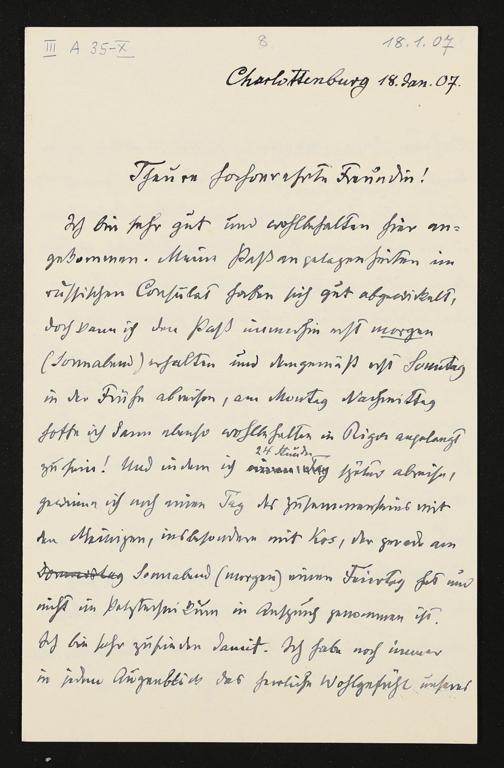 III A 35-X 8 18.1.07
Charlottenburg 18. Jan. 07.
Theure hochverehrte Freundin!
Ich bin sehr gut und wohlbehalten hier an=
gekommen. Meine Paßangelegenheiten im
russischen Consulat haben sich gut abgewickelt,
doch kann ich den Paß immerhin erst morgen
(Sonnabend) erhalten und demgemäß erst Sonntag
in der Frühe abreisen, am Montag Nachmittag
hoffe ich dann ebenso wohlbehalten in Riga angelangt
zu sein! Und indem ich einen Tag 24 Stunden später abreise,
gewinne ich noch einen Tag des Zusammenseins mit
den Meinigen, insbesondere mit Kos, der gerade am
Donnerstag Sonnabend (morgen) einen Feiertag hat und
nicht im Polytechnikum in Anspruch genommen ist.
Ich bin sehr zufrieden damit. Ich habe noch immer
in jedem Augenblick das herrliche Wohlgefühl unseres